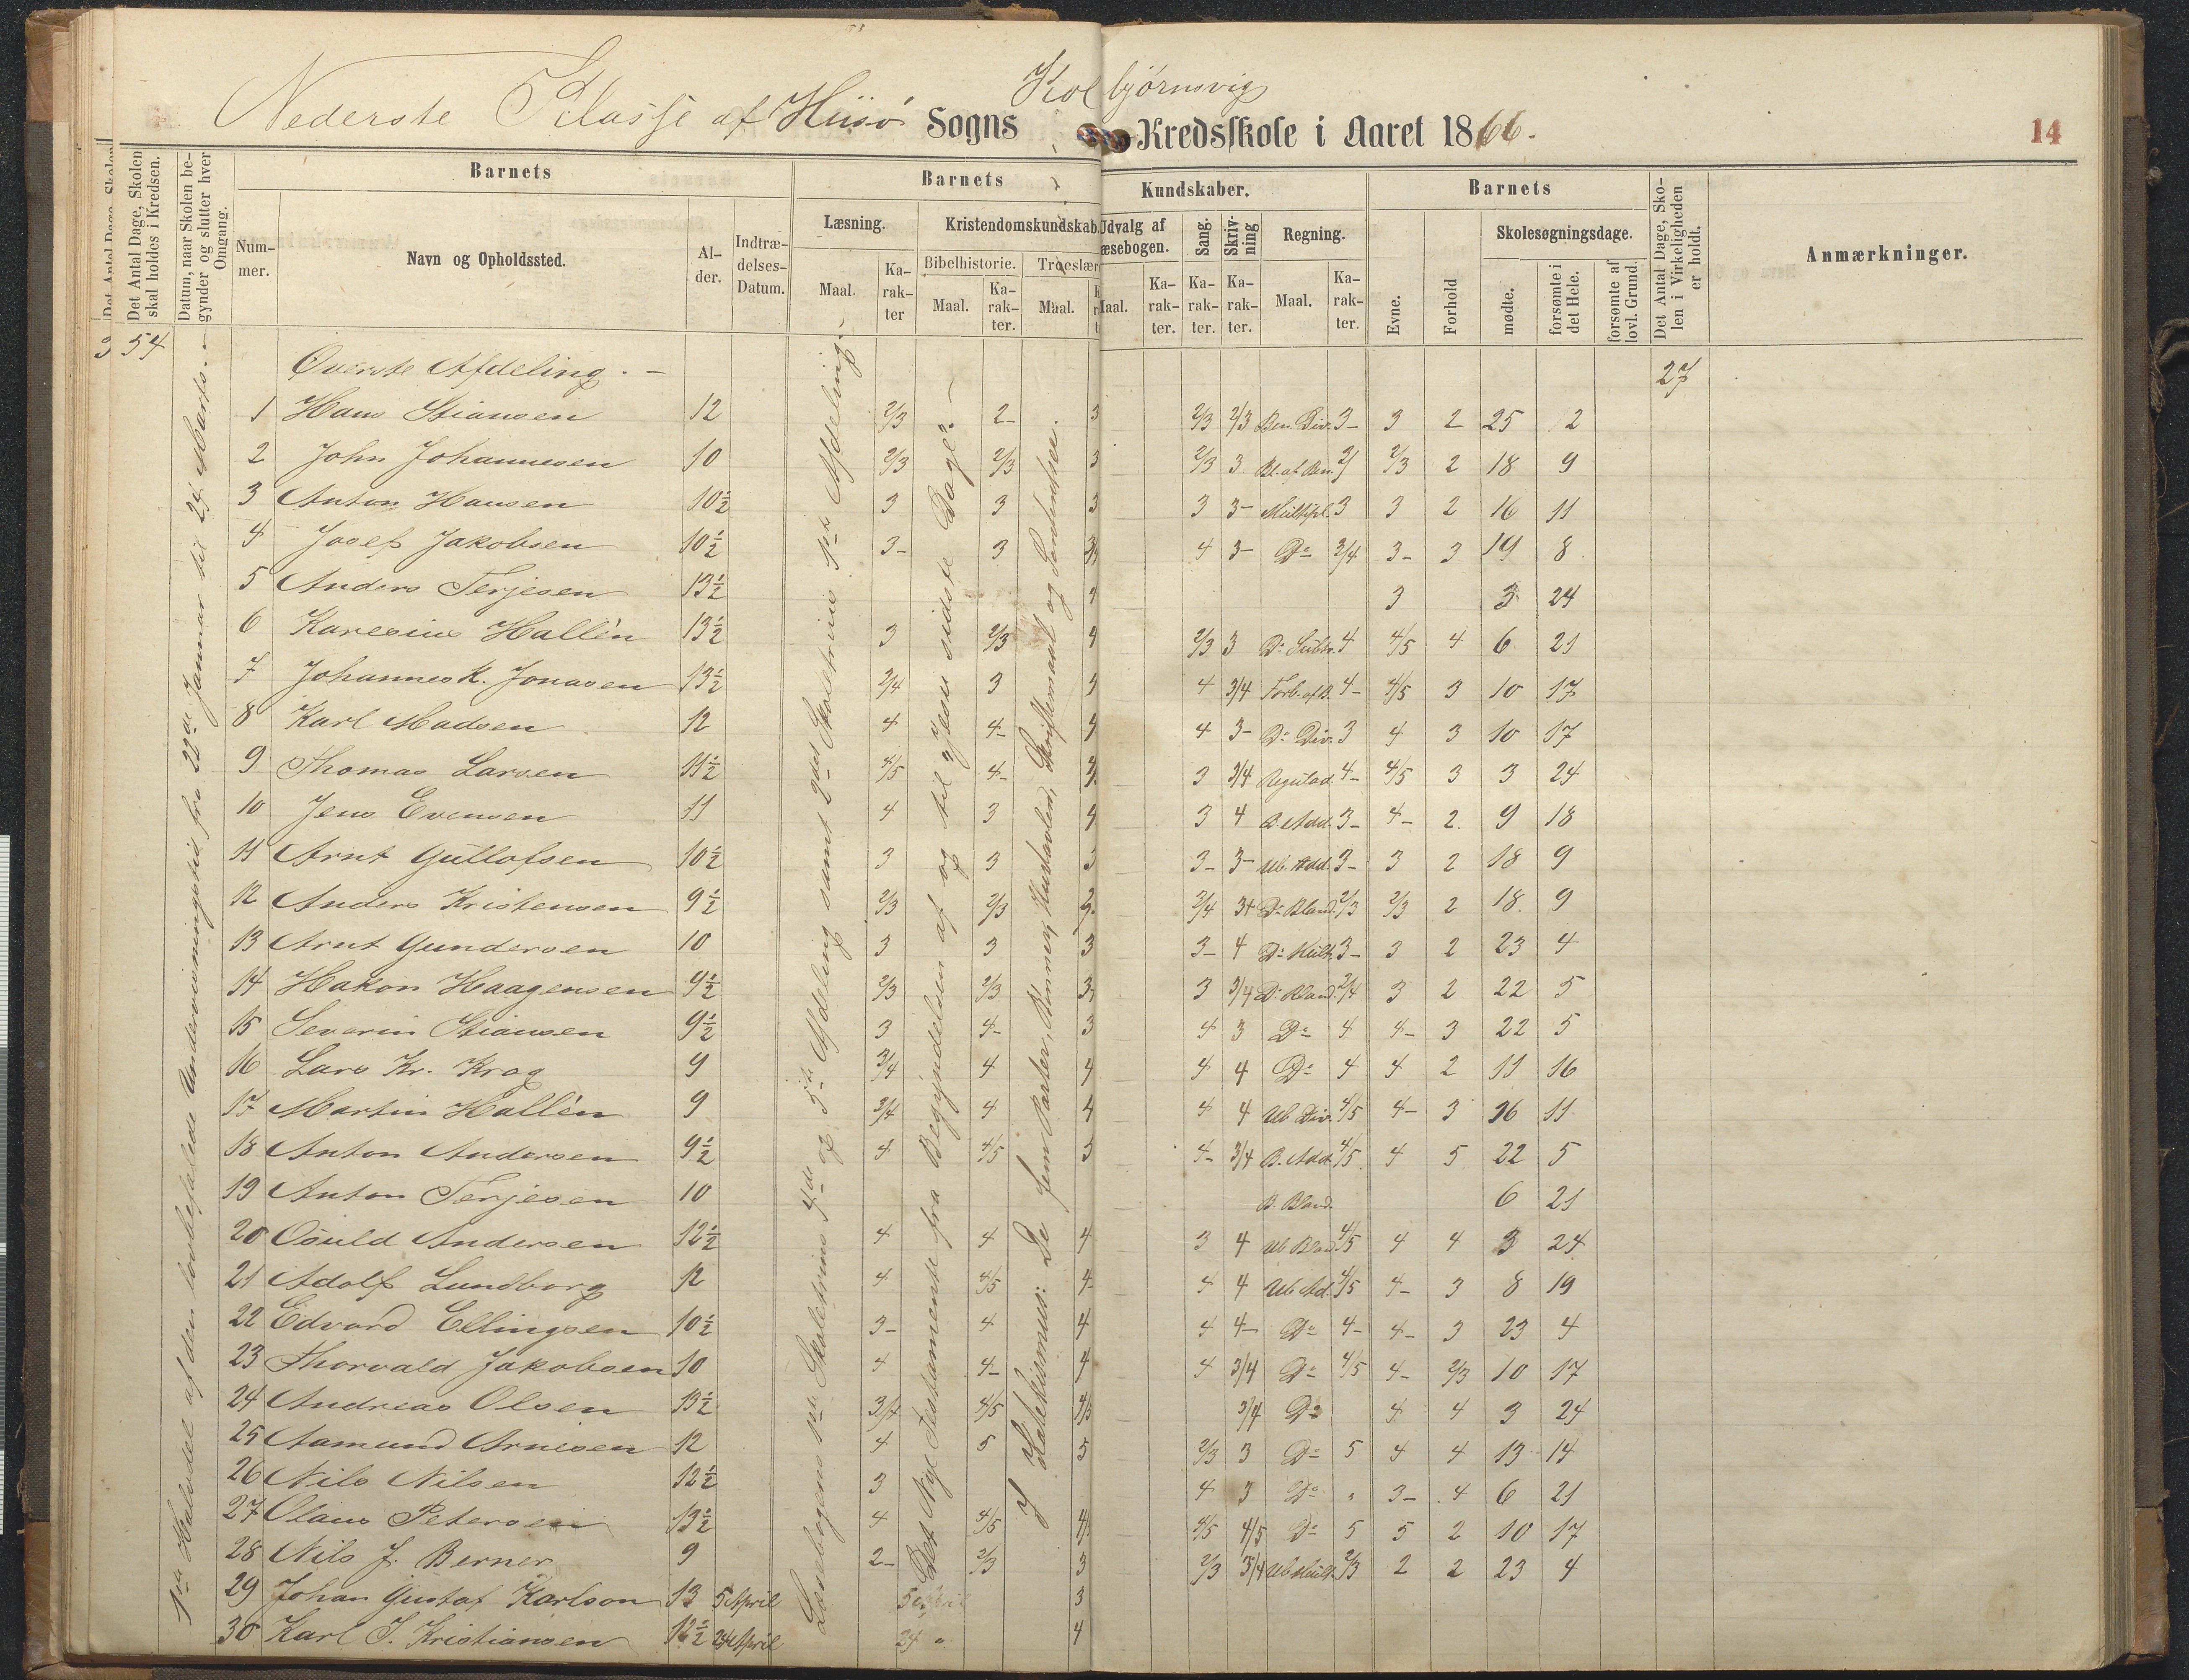 Kolbjørnsvig
Nederste Klasse af Hiisø Sogns Kredsskole i Aaret 1866.
14
Det Antal Dage, Skolen skal holdes i Kredsen.
Datum, naar Skolen begynder og slutter hver Omgang.
Barnets
Nummer.
Navn og Opholdssted.
Alder.
Indtrædelses-Datum.
Barnets Kundskaber.
Læsning.
Maal. Karakter
Kristendomskundskab.
Bibelhistorie.
Maal. Karakter.
Troeslær
Maal.
Udvalg af Læsebogen.
Maal. Karakter.
Sang. Karakter.
Skrivning Karakter.
Regning.
Maal. Karakter.
Barnets
Evne.
Forhold
Skolesøgningsdage.
mødte.
forsømte i det Hele.
forsømte af lovl. Grund.
Det Antal Dage, Skolen i Virkeligheden er holdt.
Anmærkninger.
54
1ste Halvdel af den lovbefalede Undervisningstid fra 22de Januar til 24 Marts.
Læsebogens 1ste Skoletrins 4de og 5te Afdeling samt 2det Skoletrins 1ste Afdeling.
Det Nye Testamente fra Begyndelsen af og til Jesu sidste Dage.
I Katekismus: De fem Parter, Bønner, Hustavlen, Skriftemaal og
Øverste Afdeling. 27
1 Hans Stiansen 12 2/3 2- 3 2/3 2/3 Ben. Div. 3- 3 2 25 2
2 John Johannesen 10 2/3 2/3 3 2/3 3 Bl. af Ben. 2/3 2 18 9
3 Anton Hansen 10½ 3 3 3 3 3- Multipl. 3 3 2 16 11
4 Josef Jakobsen 10½ 3- 3 4 3- Do 3/4 3- 3 19 8
5 Anders Terjesen 13½ 4 3 3 24
6 Karesius Hallén 13½ 3 2/3 4 2/3 3 Do Subtr. 4 4/5 4 6 21
7 Johannes K. Jonasen 13½ 3/4 3 4 3/4 Forb. af B. 4- 4/5 3 10 17
8 Karl Madsen 12 4 4- 4 4 3- Do Div. 3 4 3 10 17
9 Thomas Larsen 11½ 4/5 4- 3 3/4 4- 4/5 3 3 24
10 Jens Evensen 11 4 3 4 3 4 B. Add. 3- 4- 2. 9 18
11 Arnt Gullofsen 10½ 3 3 3 3- 3- Ub. Add. 3- 3 2 18 9
12 Anders Kristensen 9½ 2/3 2/3 3/4 3+ Do Bland. 2/3 2/3 2 18. 9
13 Arnt Gundersen 10 3 3 3 3- 4 Do Mult. 3- 3 2 23 4
14 Hakon Haagensen 9½ 2/3 2/3 3 3 3/4 Do Bland. 3/4 3 2 22 5
15 Severin Stiansen 9½ 3 4- 3 4 3 Do 4 4- 3 22 5
16 Lars Kr. Krog 9 3/4 4 4 4 4 Do 4 4 2 11 16
17 Martin Hallén 9 3/4 4 4 4 4 Ub Div. 4/5 4- 3 16 11
18 Anton Andersen 9½ 4 4/5 5 4- 3/4 B. Add. 4/5 4 5 22 5
19 Anton Terjesen 10 B. Bland. 6 21
20 Osuld Andersen 12½ 4 4 4 3 4 Ub Bland 4/5 4 4 3 24
21 Adolf Lundborg 12 4 4/5 4- 4 4 Ub Ad. 4/5 4- 3 8 19
22 Edvard Ellingsen 10½ 3- 4 4 4 4- Do 4- 4- 3 23 4
23 Thorvald Jakobsen 10 4 4- 4 4 3/4 Do 4/5 4- 2/3 10 17
24 Andreas Olsen 13½ 3/4 4/5 4/5 3/4 Do 4 4 3 24
25 Aamund Arnesen 12 4 5 5 2/3 3 Do 5 4 4 13 14
26 Nils Nilsen 12½ 3 4 3 Do " 3- 4 6 21
27 Olaus Petersen 13½ 4 4/5 4/5 4/5 4/5 Do 5 5 2 10 17
28 Nils J. Berner 9 2- 2/3 3 2/3 3/4 Ub Mult. 2/3 2 2 23 4
29 Johan Gustaf Karlson 13 5 April 3
30 Karl J. Kristiansen 12½ 24 April 24 " 4